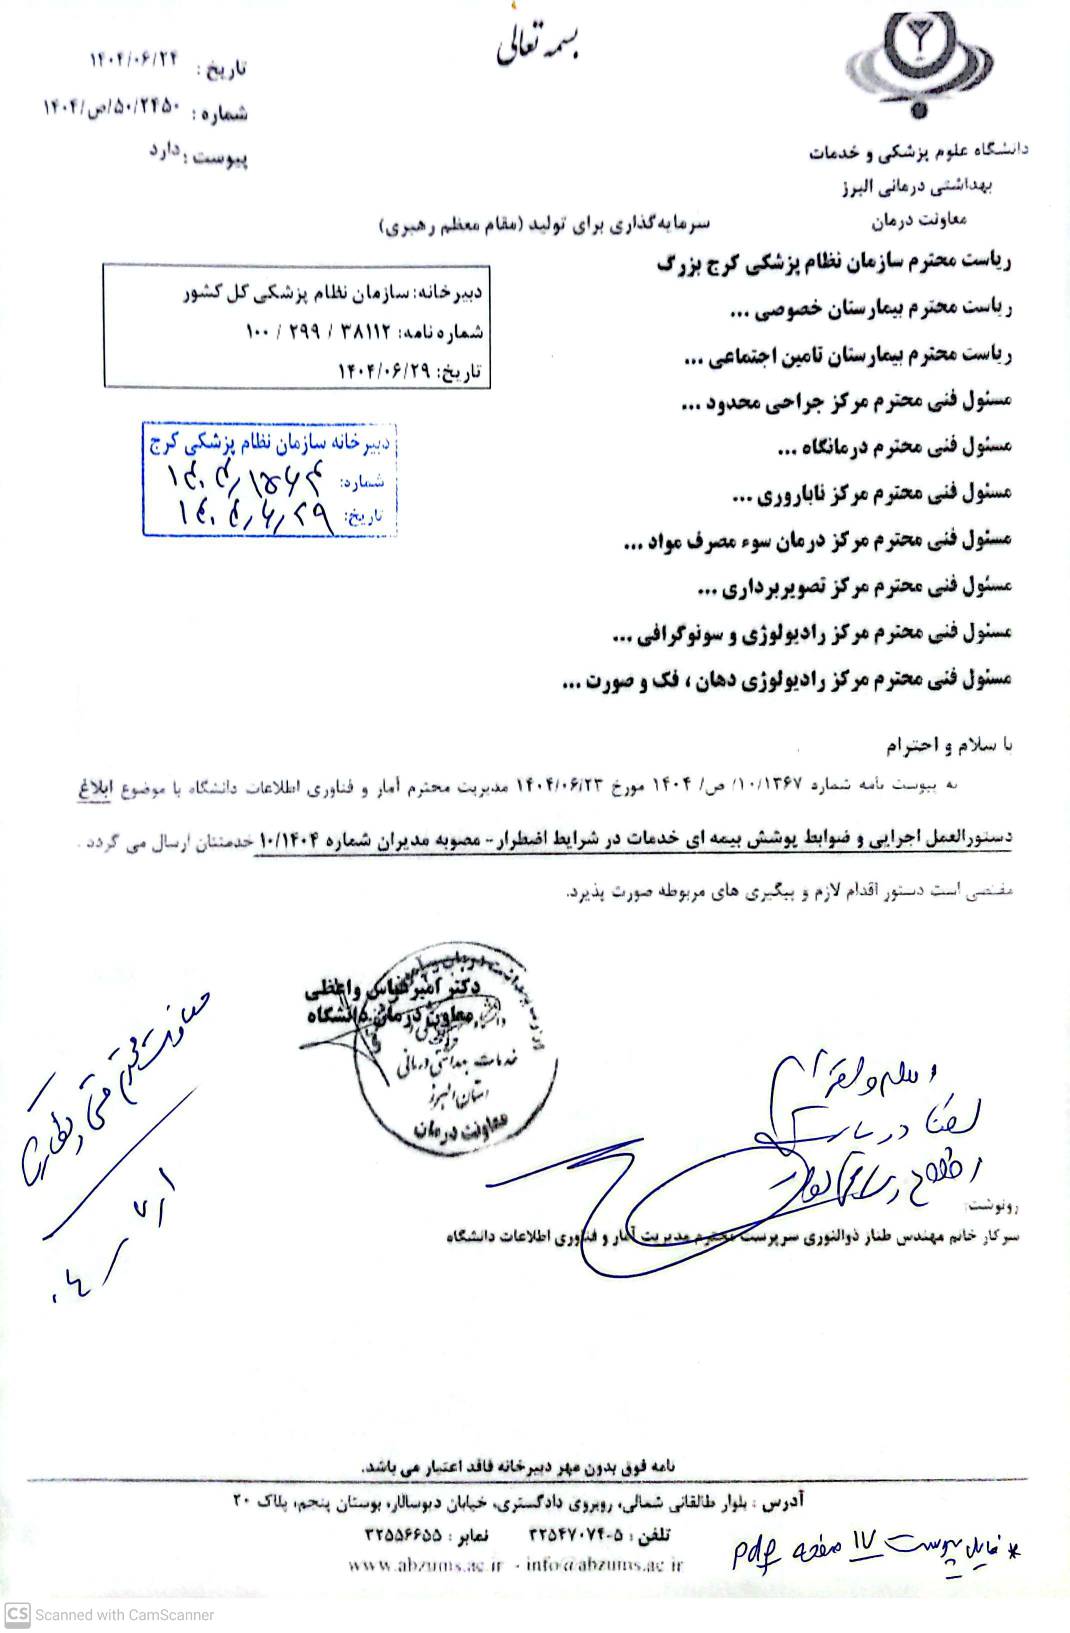 بسمه تعالی
تاریخ : ۱۴۰۴/۰۶/۲۴
شماره : ۱۴۰۴/ص/۵۰/۲۴۵۰
پیوست : دارد
دانشگاه علوم پزشکی و خدمات
بهداشتی درمانی البرز
معاونت درمان
سرمایه‌گذاری برای تولید (مقام معظم رهبری)
ریاست محترم سازمان نظام پزشکی کرج بزرگ
ریاست محترم بیمارستان خصوصی ...
ریاست محترم بیمارستان تامین اجتماعی ...
مسئول فنی محترم مرکز جراحی محدود ...
مسئول فنی محترم درمانگاه ...
مسئول فنی محترم مرکز ناباروری ...
مسئول فنی محترم مرکز درمان سوء مصرف مواد ...
مسئول فنی محترم مرکز تصویربرداری ...
مسئول فنی محترم مرکز رادیولوژی و سونوگرافی ...
مسئول فنی محترم مرکز رادیولوژی دهان ، فک و صورت ...
دبیرخانه: سازمان نظام پزشکی کل کشور
شماره نامه: ۳۸۱۱۲ / ۲۹۹ / ۱۰۰
تاریخ: ۱۴۰۴/۰۶/۲۹
دبیرخانه سازمان نظام پزشکی کرج
شماره:
تاریخ: ۱۴۰۴/۶/۲۹
با سلام و احترام
به پیوست نامه شماره ۱۰/۱۳۶۷/ ص/ ۱۴۰۴ مورخ ۱۴۰۴/۰۶/۲۳ مدیریت محترم آمار و فناوری اطلاعات دانشگاه با موضوع ابلاغ
دستورالعمل اجرایی و ضوابط پوشش بیمه ای خدمات در شرایط اضطرار- مصوبه مدیران شماره ۱۰/۱۴۰۴ خدمتتان ارسال می گردد .
مقتضی است دستور اقدام لازم و پیگیری های مربوطه صورت پذیرد.
دکتر امیرعباس واعظی
معاون درمان دانشگاه
خدمات بهداشتی درمانی
استان البرز
معاونت درمان
معاونت محترم فنی و نظارت
لطفا در
رونوشت:
سرکار خانم مهندس طناز ذوالنوری سرپرست محترم مدیریت آمار و فناوری اطلاعات دانشگاه
نامه فوق بدون مهر دبیرخانه فاقد اعتبار می باشد.
آدرس : بلوار طالقانی شمالی، روبروی دادگستری، خیابان دیوسالار، بوستان پنجم، پلاک ۲۰
تلفن : ۵-۳۲۵۴۷۰۷۴ نمابر : ۳۲۵۵۶۶۵۵
www.abzums.ac.ir - info@abzums.ac.ir
* فایل پیوست ۱۷ صفحه pdf
CS Scanned with CamScanner